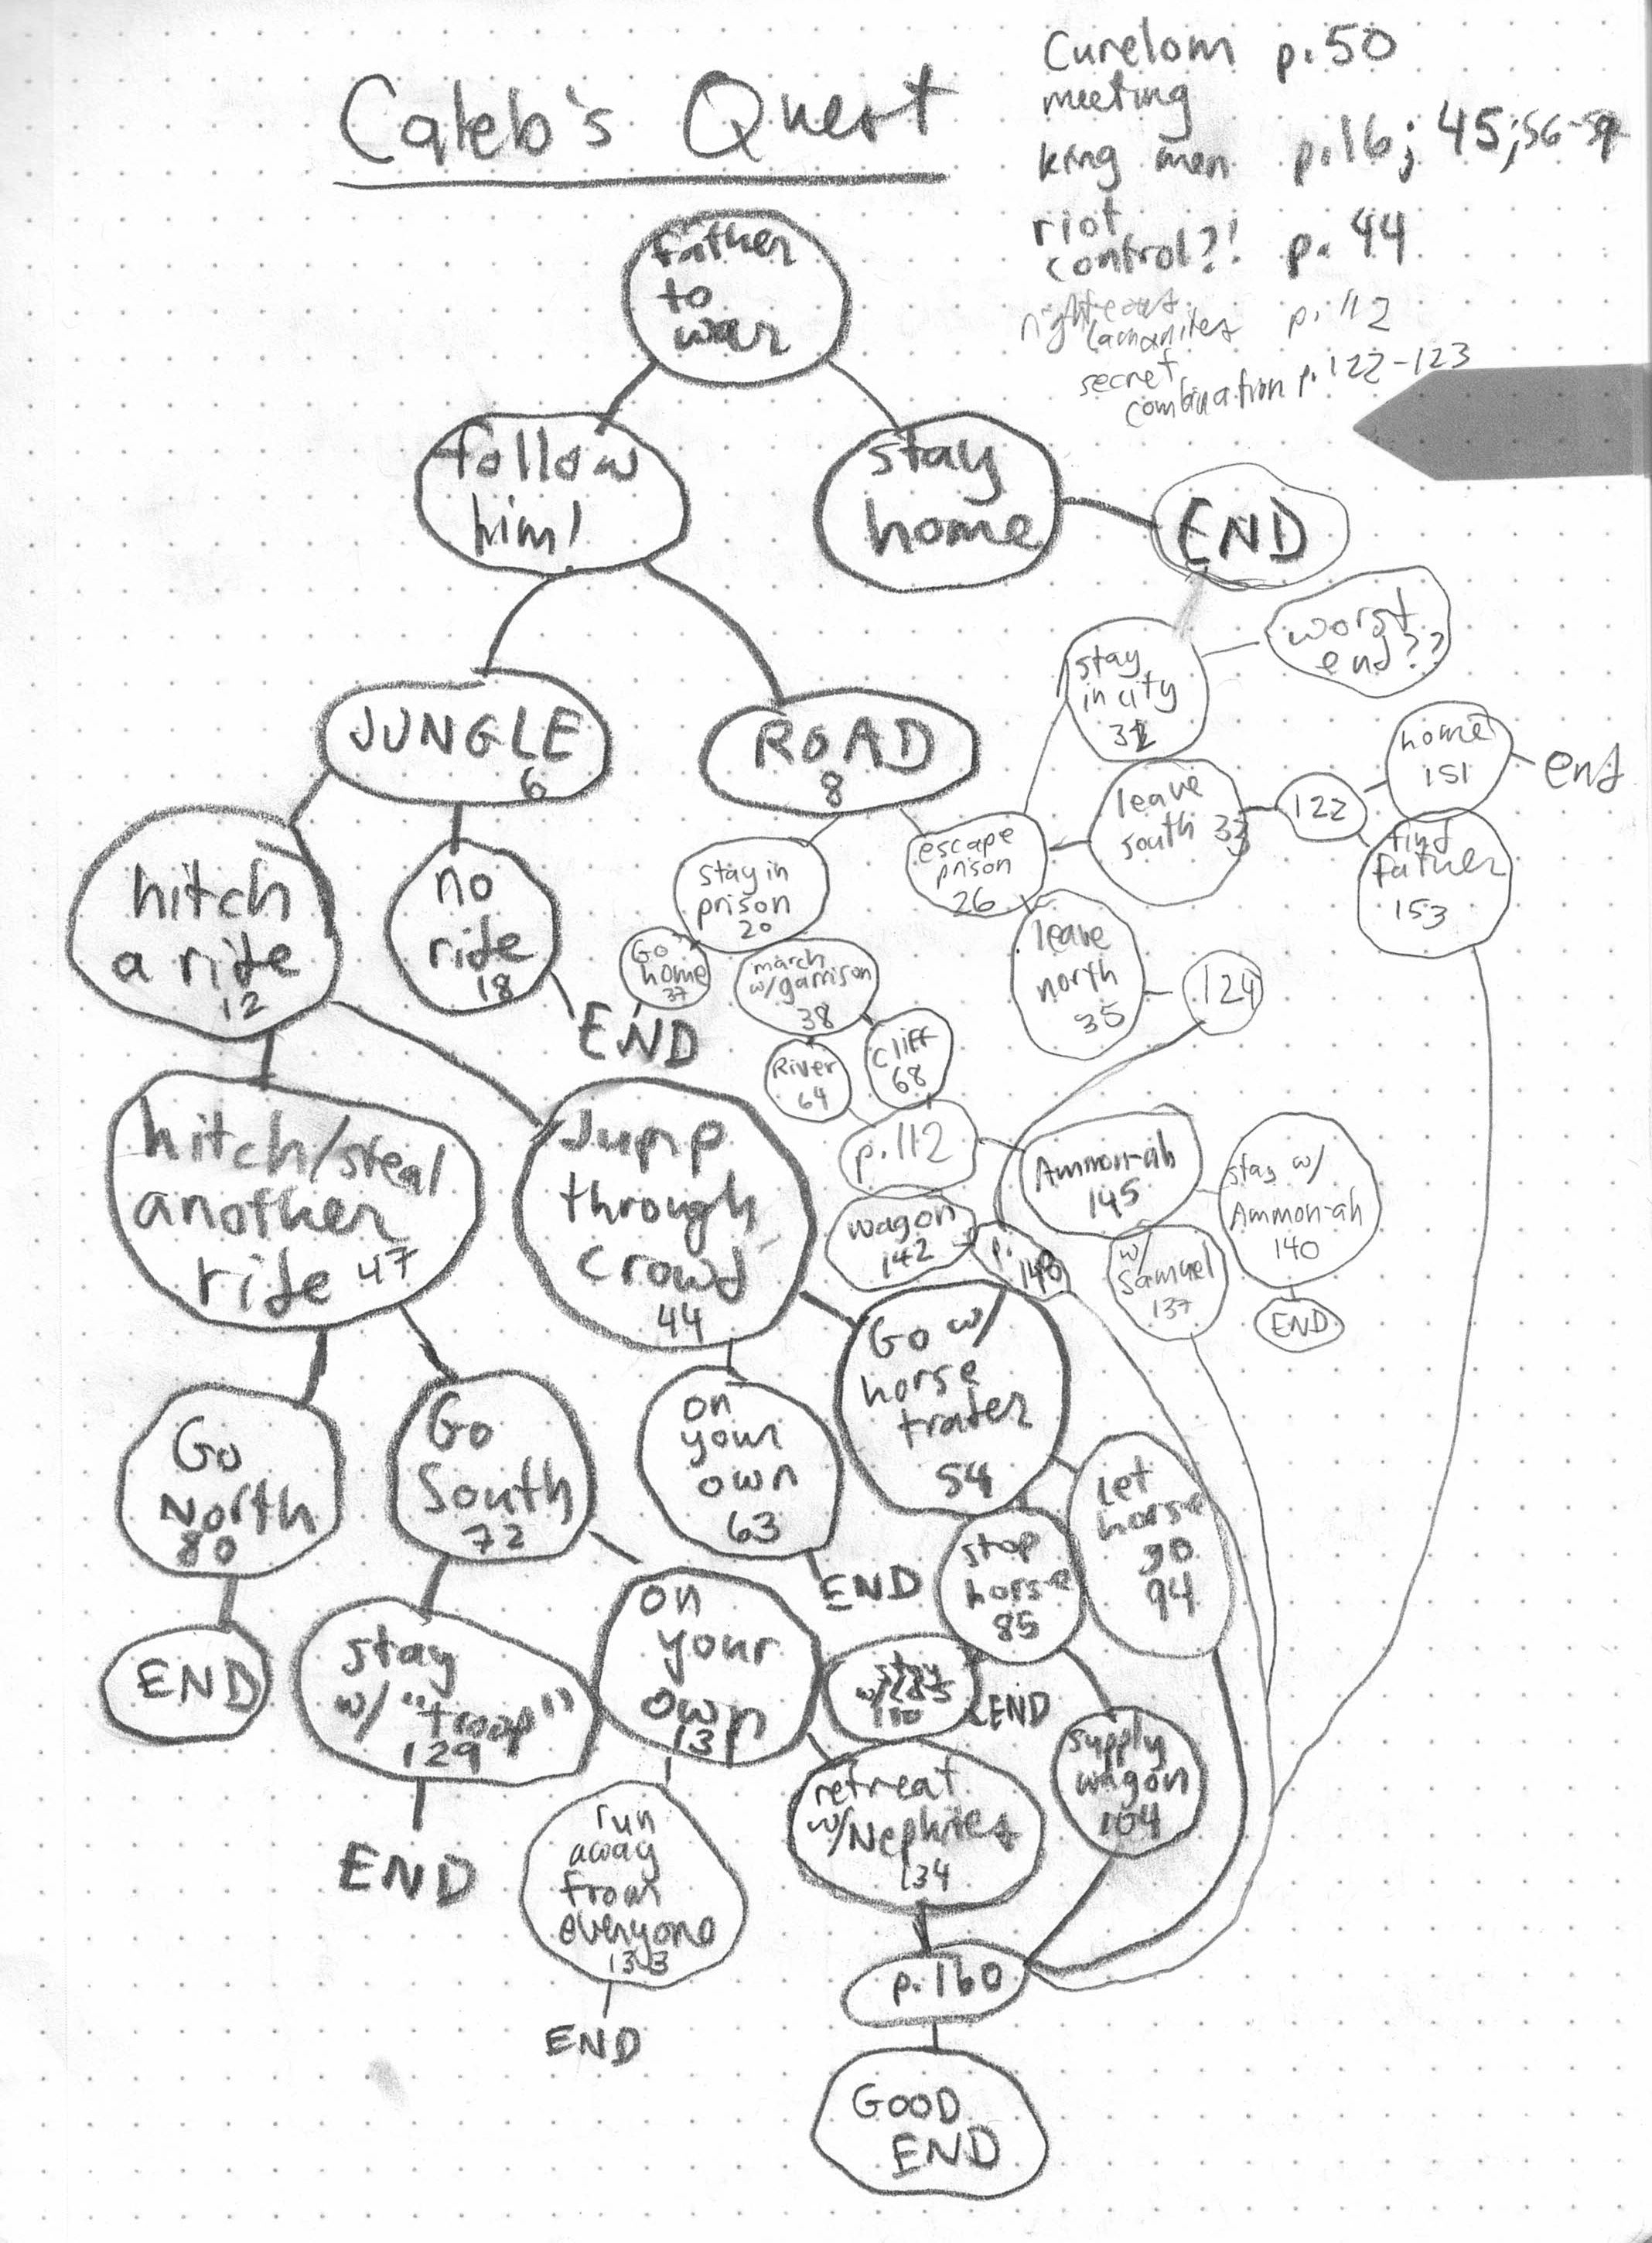 Caleb's Quest
Curelom p. 50
meeting
king men p. 16; 45; 56-59
riot
control?! p. 44
righteous
Lamanites p. 112
secret
combination p. 122-123
father
to
war
follow
him!
stay
home
END
JUNGLE
6
ROAD
8
stay
in city
32
worst
end??
leave
south 33
122
home
151
end
find
father
153
escape
prison
26
leave
north
35
124
stay in
prison
20
Go
home
37
march
w/garrison
38
END
River
64
Cliff
68
p. 112
hitch
a ride
12
no
ride
18
hitch/steal
another
ride 47
Jump
through
crowd
44
wagon
142
p.
148
Ammon-ah
145
stay w/
Ammon-ah
140
END
w/
Samuel
137
Go
North
80
END
Go
South
72
on
your
own
63
END
Go w/
horse
trader
54
stop
horse
85
Let
horse
go
94
stay
w/
"troop"
129
END
on
your
own
131
stay
END
supply
wagon
104
retreat
w/Nephites
134
run
away
from
everyone
133
END
p. 160
GOOD
END